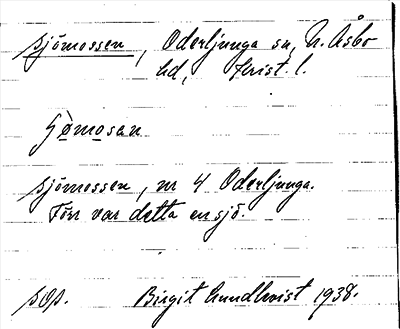 sjömossen, Oderljunga sn, N. Åsbo
hd, Krist. l.
sjömossen, nr 4 Oderljunga.
Förr var detta en sjö.
sop. Birgit Lundkvist 1938.